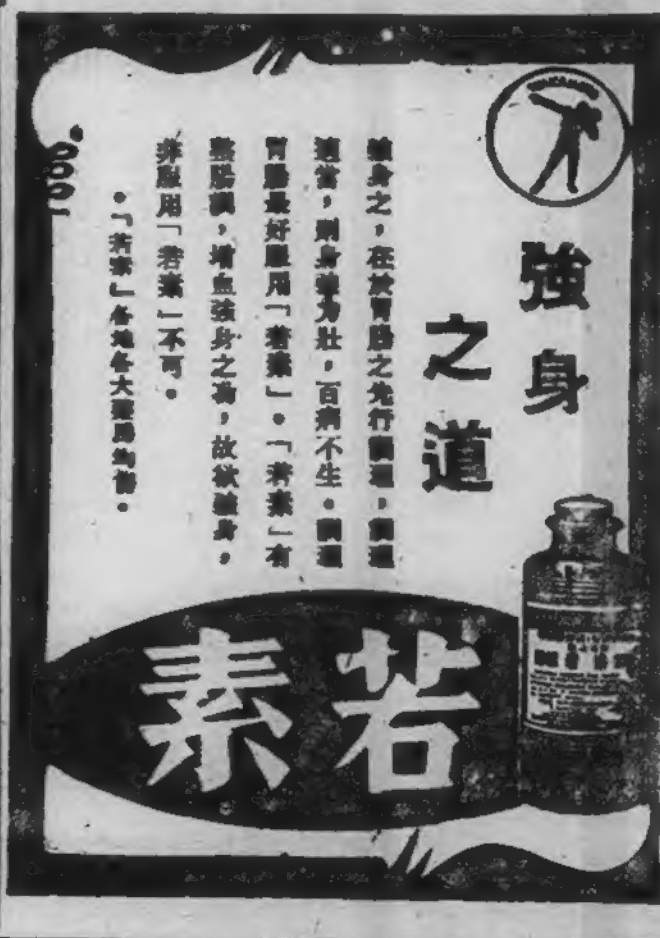 強身
之道
強身之，在於胃腸之先行調理，調理
適當，則身強力壯，百病不生。調理
胃腸最好服用「若素」。「若素」有
整腸調，增血強身之功，故欲強身，
非服用「若素」不可。
。「若素」各地各大藥房均售。
若素